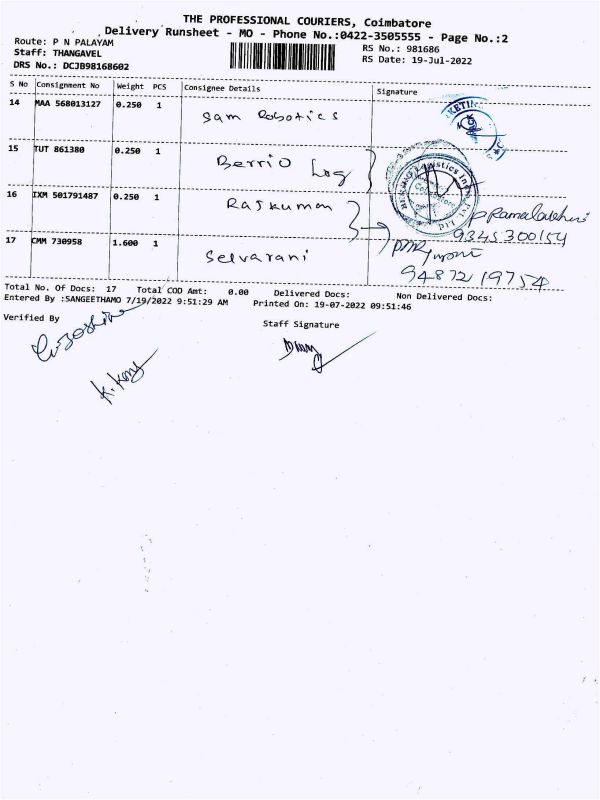 THE PROFESSIONAL COURIERS, Coimbatore
Delivery Runsheet - MO - Phone No.:0422-3505555 - Page No.:2
Route: P N PALAYAM
Staff: THANGAVEL
DRS No.: DCJB98168602
RS No.: 981686
RS Date: 19-Jul-2022
S No Consignment No Weight PCS Consignee Details Signature
14 MAA 568013127 0.250 1 Sam Robotics
15 TUT 861380 0.250 1 Berrio Log
16 IXM 501791487 0.250 1 Rajkumar
9345300154
17 CMM 730958 1.600 1 Selvarani
9487219754
Total No. Of Docs: 17 Total COD Amt: 0.00 Delivered Docs: Non Delivered Docs:
Entered By :SANGEETHAMO 7/19/2022 9:51:29 AM Printed On: 19-07-2022 09:51:46
Verified By
Staff Signature